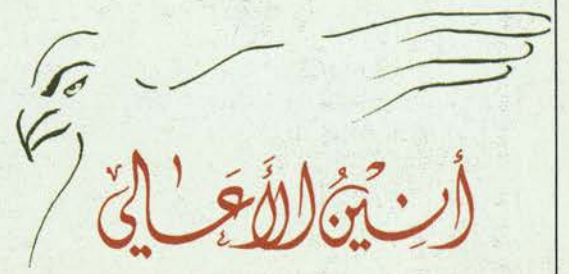 أَنِينُ الأَعَالِي